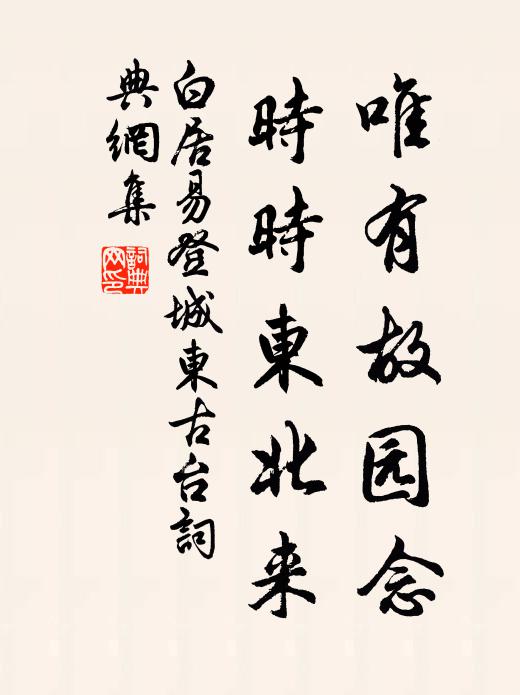 唯有故园念
時時東北来
白居易登城東古台詞
典網集
詞典
网印